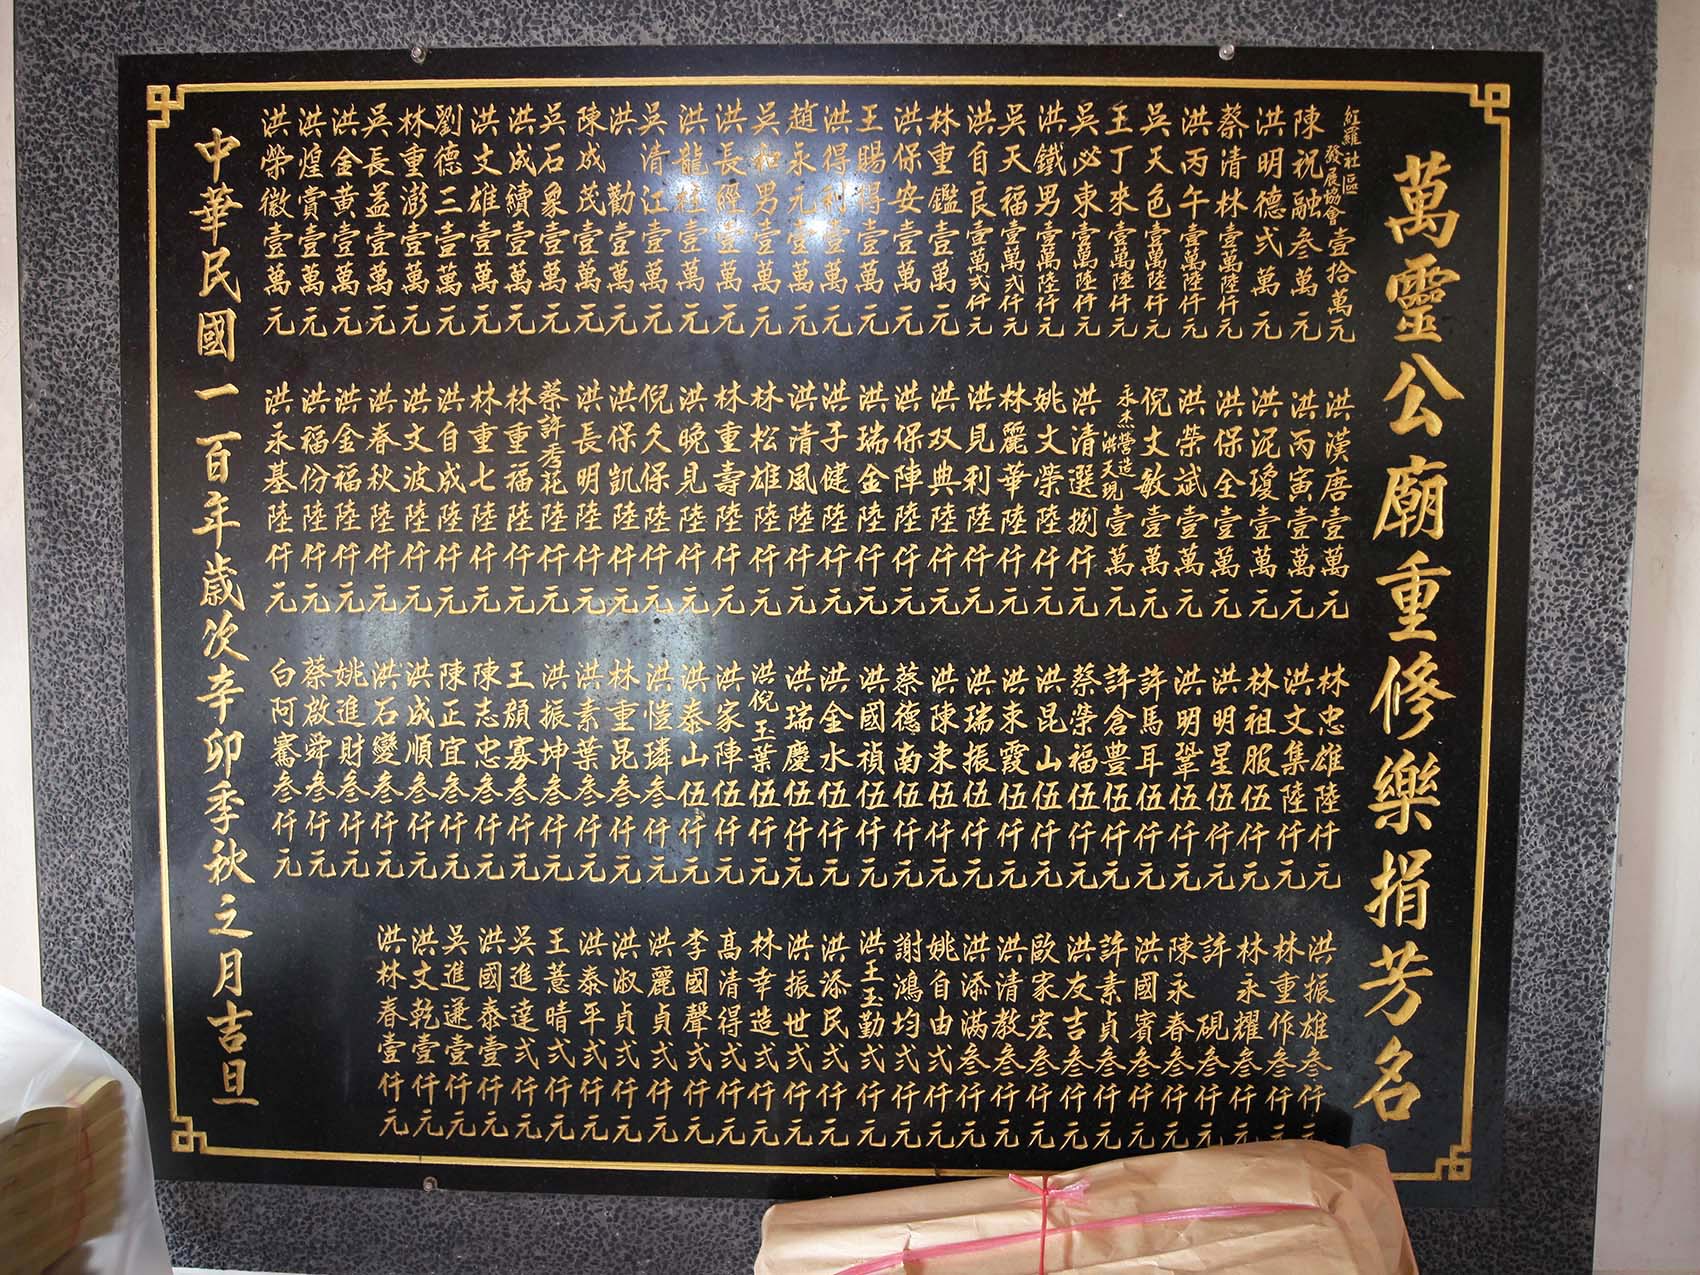 萬靈公廟重修樂捐芳名
紅羅社區發展協會壹拾萬元
陳祝融叁萬元
洪明德弍萬元
蔡清林壹萬陸仟元
洪丙午壹萬陸仟元
吳天色壹萬陸仟元
王丁來壹萬陸仟元
吳必東壹萬陸仟元
洪鐵男壹萬陸仟元
吳天福壹萬弍仟元
洪自良壹萬弍仟元
林重鑑壹萬元
洪保安壹萬元
王賜得壹萬元
洪得利壹萬元
趙永元壹萬元
吳和男壹萬元
洪長經壹萬元
洪龍柱壹萬元
吳清江壹萬元
洪勸壹萬元
陳成茂壹萬元
吳石象壹萬元
洪成續壹萬元
洪文雄壹萬元
劉德三壹萬元
林重澎壹萬元
吳長益壹萬元
洪金黃壹萬元
洪煌賞壹萬元
洪榮徽壹萬元
洪漢唐壹萬元
洪丙寅壹萬元
洪泥瓊壹萬元
洪保全壹萬元
洪榮斌壹萬元
倪文敏壹萬元
永杰營造洪天現壹萬元
洪清選捌仟元
姚文榮陸仟元
林麗華陸仟元
洪見利陸仟元
洪双典陸仟元
洪保陣陸仟元
洪瑞金陸仟元
洪子健陸仟元
洪清風陸仟元
林松雄陸仟元
林重壽陸仟元
洪晚見陸仟元
倪久保陸仟元
洪保凱陸仟元
洪長明陸仟元
蔡許秀花陸仟元
林重福陸仟元
林重七陸仟元
洪自成陸仟元
洪文波陸仟元
洪春秋陸仟元
洪金福陸仟元
洪福份陸仟元
洪永基陸仟元
林忠雄陸仟元
洪文集陸仟元
林祖服伍仟元
洪明星伍仟元
洪明鞏伍仟元
許馬耳伍仟元
許倉豊伍仟元
蔡榮福伍仟元
洪昆山伍仟元
洪束霞伍仟元
洪瑞振伍仟元
洪陳束伍仟元
蔡德南伍仟元
洪國禎伍仟元
洪金水伍仟元
洪瑞慶伍仟元
洪倪玉葉伍仟元
洪家陣伍仟元
洪泰山伍仟元
洪愷璘叁仟元
林重昆叁仟元
洪素葉叁仟元
洪振坤叁仟元
王頎寡叁仟元
陳志忠叁仟元
陳正宜叁仟元
洪成順叁仟元
洪石變叁仟元
姚進財叁仟元
蔡啟舜叁仟元
白阿騫叁仟元
洪振雄叁仟元
林重作叁仟元
林永耀叁仟元
許硯叁仟元
陳永春叁仟元
洪國賓叁仟元
許素貞叁仟元
洪友吉叁仟元
歐家宏叁仟元
洪清教叁仟元
洪添滿叁仟元
姚自由弍仟元
謝鴻均弍仟元
洪王玉勤弍仟元
洪添民弍仟元
洪振世弍仟元
林幸造弍仟元
高清得弍仟元
李國聲弍仟元
洪麗貞弍仟元
洪淑貞弍仟元
洪泰平弍仟元
王薏晴弍仟元
吳進達弍仟元
洪國泰壹仟元
吳進謙壹仟元
洪文乾壹仟元
洪林春壹仟元
中華民國一百年歲次辛卯季秋之月吉旦